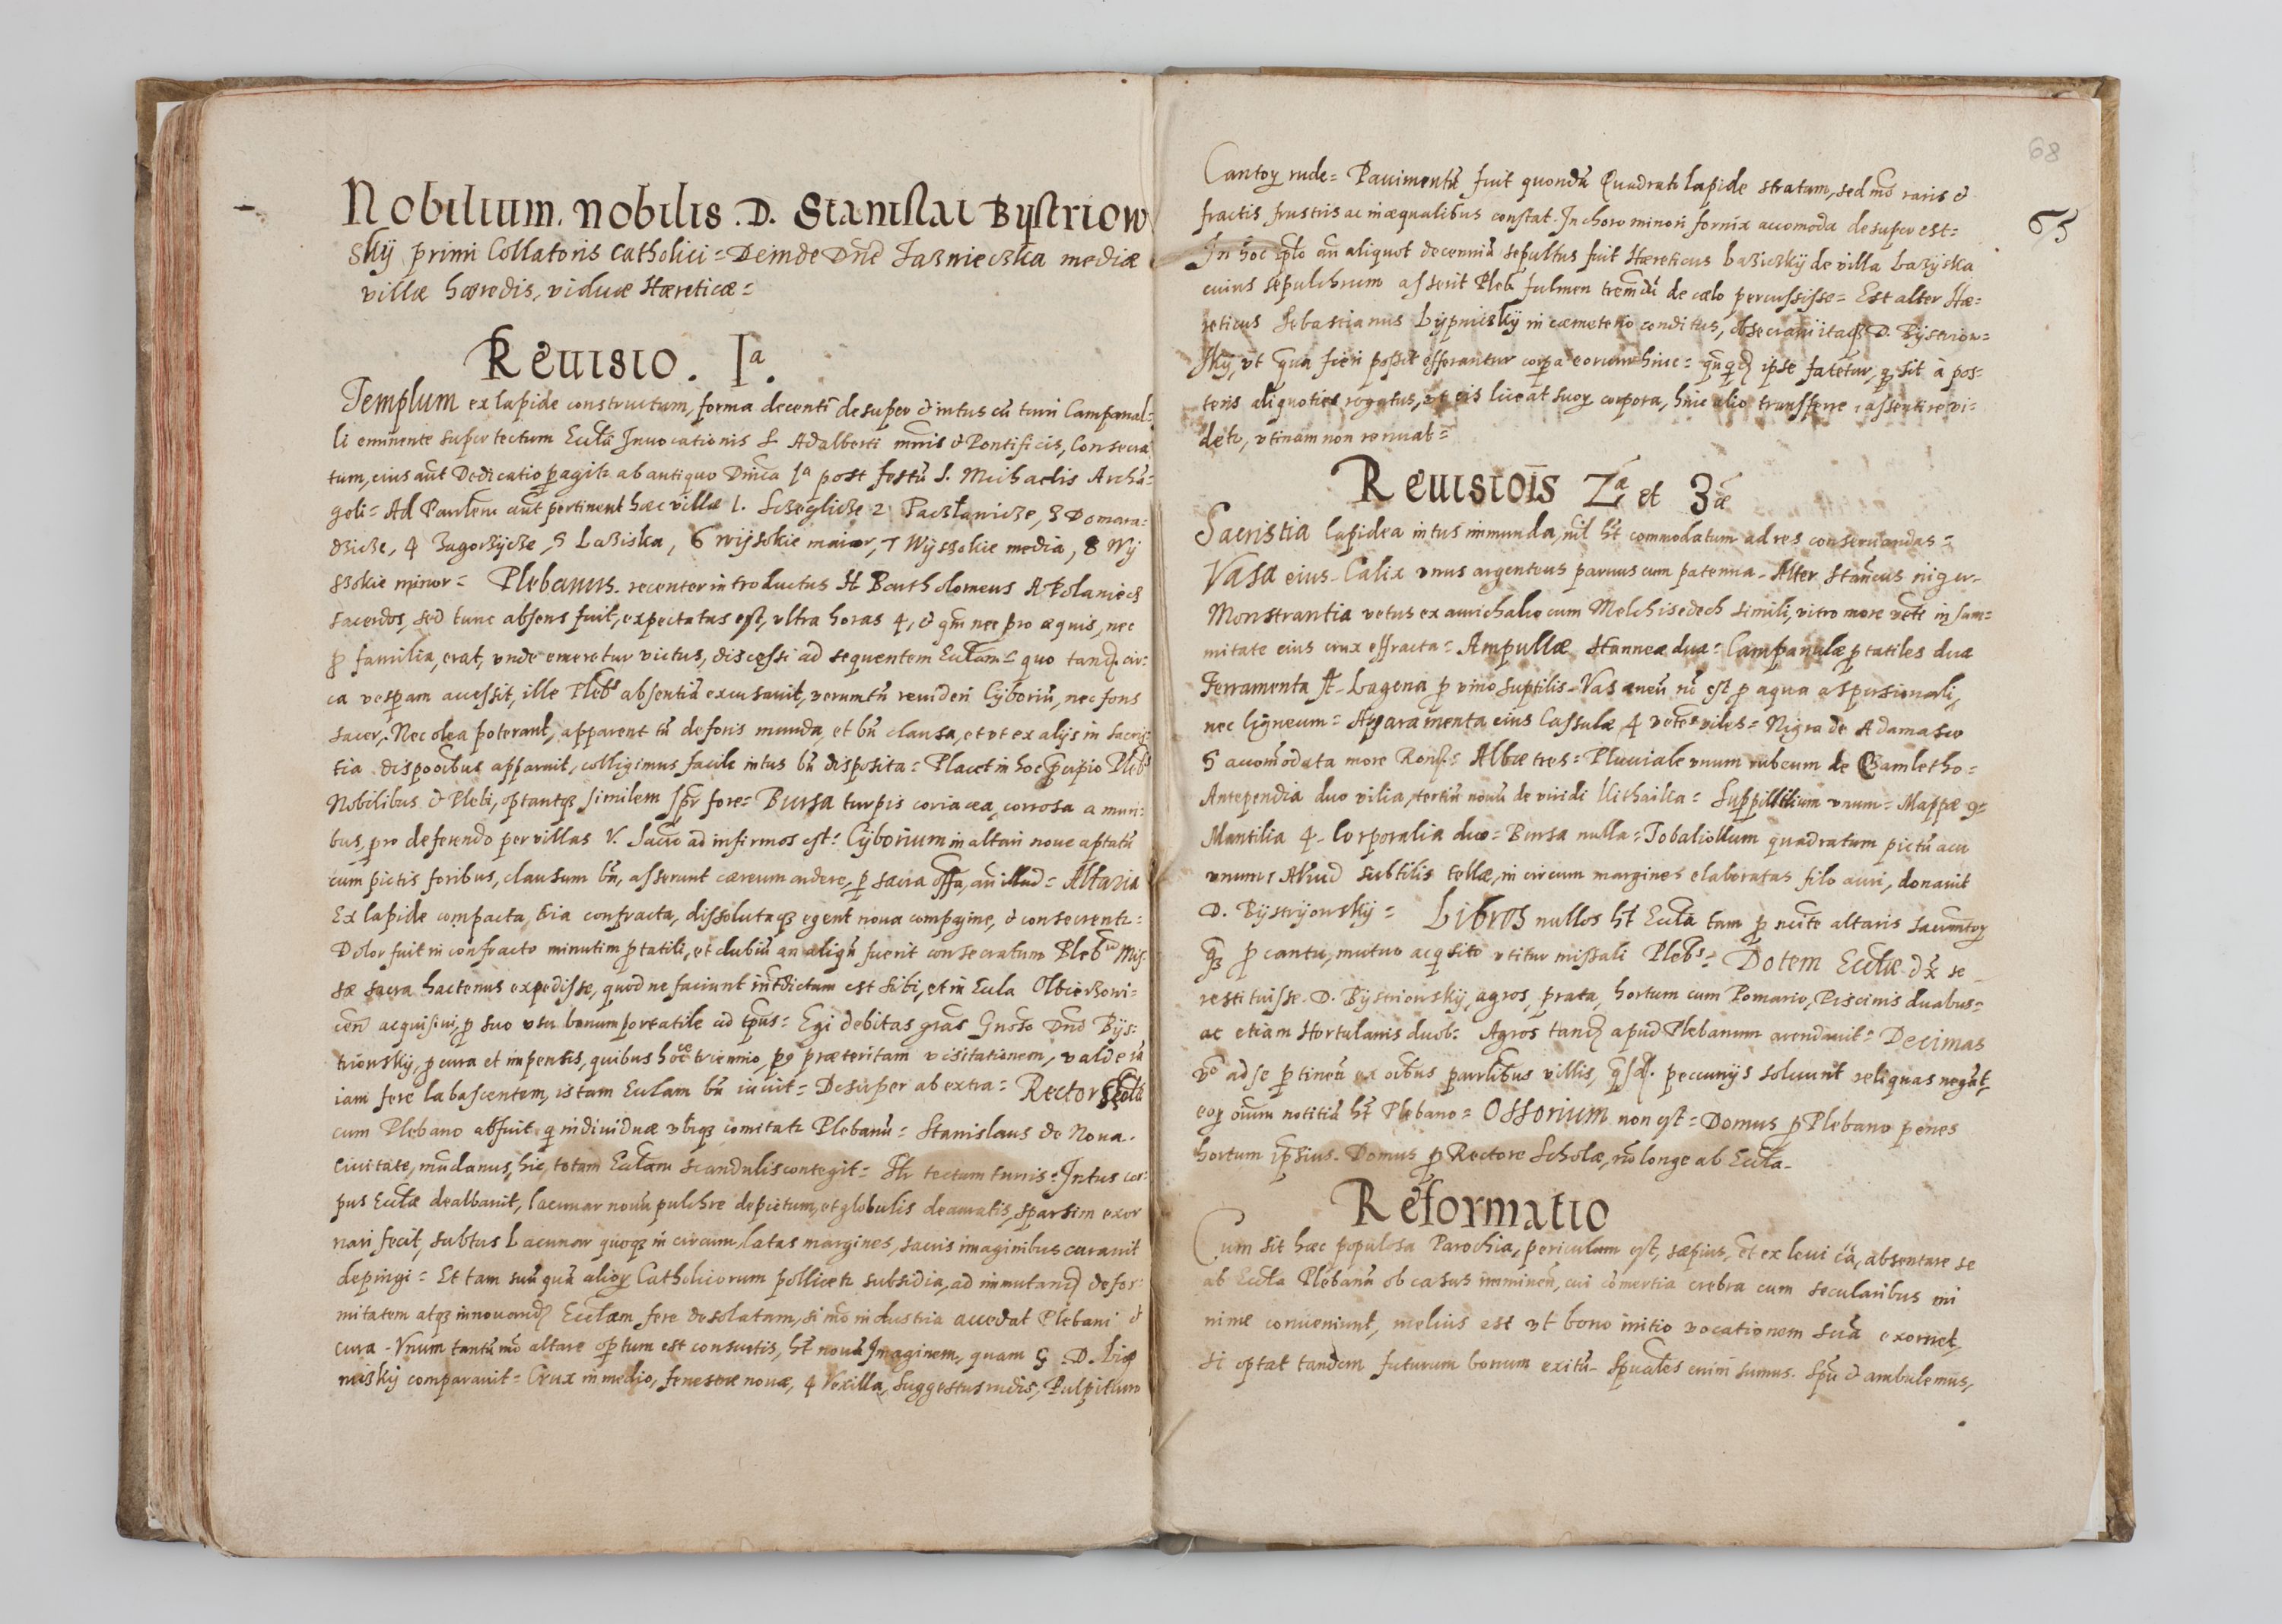 Nobilium. nobilis. D. Stanislai Bystriow
skij primi Collatoris catholici = Deinde Dnē Jasnieczka mediæ
villæ hæredis, viduæ Hæreticæ =
Reuisio. Iª.
Templum ex lapide constructum, forma decenti desuper & intus cū turri Campanal-
li eminente super tectum Eccłā Inuocationis S. Adalberti mris & Pontificis, Consecra
tum, eius aūt Dedicatio pagitr ab antiquo Dnica Iª post festū S. Michaelis Archā-
geli = Ad Parrlem aūt pertinent hæc villæ 1. Sczeglicze 2 Paczłanicze, 3 Domara-
dzicze, 4 Zagorzijcze, 5 Laziska, 6 wijsokie maior, 7 Wyszokie media, 8 Wij
szokie minor = Plebanus. recenter introductus H Bartholomeus A Polaniecz
sacerdos, sed tunc absens fuit, expectatus est, vltra horas 4, & qm nec pro æquis, nec
p familia, erat, vnde emeretur victus, discessi ad sequentem Ecclam = quo tandē cir-
ca vespam accessit, ille Plebs absentiā excusauit, verumtn reuideri Cyboriū, nec fons
sacer, Nec olea poterant, apparent tn deforis munda, et bn clausa, et vt ex alijs in sacris-
tia dispositibus apparuit, colligimus facile intus bn disposita = Placet in hoc pcipio Plebs
Nobilibus & Plebi, optantqз similem spr fore = Bursa turpis coriacea, corrosa a muri-
bus, pro deferendo per villas V. Sacro ad infirmos est: Cyborium in altari noue aptatū
cum pictis foribus, clausum bn, asserunt cæreum ardere, p sacra offa, an illud = Altaria
Ex lapide compacta, tria confracta, dissolutaqз egent noua compagine, & consecrentr =
Dolor fuit in confracto minutim ptatili, et dubiū an aliqn fuerit consecratum Plebm Mis-
sæ sacra hactenus expedisse, quod ne faciunt intdictum est sibi, et in Eccla Obierzowi-
cen acquisiui, p suo vsu bonum portatile ad tpus = Egi debitas gras Gnoso Dno Bijs-
trionskij, p cura et impensis, quibus hoc triennio, pg præteritam visitationem, valde in
iam fere labascentem, istam Ecclam bn iuuit = Desuper ab extra = Rector Scholæ
cum Plebano abfuit q indiuiduæ vbiqз comitatr Plebanū = Stanislaus de Noua.
Ciuitate, mūdanus, hic, totam Ecclam scandulis contegit = Itr tectum turris = Intus cor-
pus Ecclæ dealbauit, lacunar nouū pulchre depictum, et globulis deauratis, sparsim exor
nari fecit, subtus Lacunar quoqз in circum, latas margines, sacris imaginibus curauit
depingi = Et tam suū quā alioꝝ Catholicorum pollicetr subsidia, ad immutand defor-
mitatem atqз innouand Ecclam fere desolatam, si mo industria accedat Plebani &
cura - Vnum tantū mo altare optum est consuetis, ht nouā Imaginem, quam G. D. Lip
nickij comparauit = Crux in medio, fenestræ nouæ, 4 Vexilla, suggestus rudis, Pulpitum
68
65
Cantoꝝ rude = Pauimentū fuit quondā Quadrato lapide stratum, sed mō raris &
fractis frustris ac inæqualibus constat. In choro minori fornix accomoda desuper est =
In hoc tplo an aliquot decennia sepultus fuit Hæreticus Laziczkij de villa Lazyska
cuius sepulchrum asserit Pleb. fulmen tremdū de cælo percussisse = Est alter Hæ-
reticus Sebastianus Lypniczkij in cæmeterio conditus, obsecraui itaqз D. Bystriow-
skij, vt qua fieri possit efferantur corpa eorum hinc = qnqd ipse fatetur, q sit à pos-
teris aliquoties rogatus, vt eis liceat suoꝝ corpora, hinc alio transferre, assentire vi-
detr, vtinam non renuat =
Reuisiois 2ª et 3æ
Sacristia lapidea intus immunda, nil ht commodatum ad res conseruandas =
Vasa eius - Calix vnus argenteus paruus cum patenna - Alter Staneus niger -
Monstrantia vetus ex aurichalco cum Melchisedech simili, vitro more vete in sum-
mitate eius crux effracta = Ampullæ Stanneæ duæ = Campanulæ ptatiles duæ
Ferramenta st - Lagena p vino suptilis - Vas æneū nō est p aqua aspersionali,
nec ligneum = Apparamenta eius Casulæ 4 veteres viles = Nigra de Adamasco
5 accomodata more Rons = Albæ tres = Pluuiale vnum rubeum de Czamletho =
Antependia duo vilia, tertiū nouū de viridi Kithaika = Suppillilium vnum = Mappæ 9 =
Mantilia 4 - Corporalia duo = Bursa nulla = Tobaliolum quadratum pictū acu
vnum, Aliud subtilis tellæ, in circum margines elaboratas filo auri, donauit
D. Bijstrijonskij = Libros nullos ht Eccła tam p ncite altaris sacrmtoꝝ
qз p cantu, mutuo acqsito vtitur missali Plebs = Dotem Ecclæ dx se
restituisse. D. Bijstrionskij, agros, prata, hortum cum Pomario, Piscinis duabus =
ac etiam Hortulanis duob. Agros tand apud Plebanum arendauit = Decimas
vo ad se ptinen ex oibus parrlibus villis, qsd. peccunijs soluunt reliquas negāt,
eoꝝ oium notitiā ht Plebano = Ossorium non est = Domus p Plebano penes
hortum ipsius. Domus p Rectore Scholæ, nō longe ab Eccła -
Reformatio
Cum sit hæc populosa Parochia, periculum est, sæpius, et ex leui cā, absentare se
ab Eccla Plebanū ob casus imminen, cui comertia crebra cum secularibus mi
nime conueniunt, melius est vt bono initio vocationem suā exornet,
si optat tandem futurum bonum exitū - Spuales enim sumus. Spū & ambulemus,